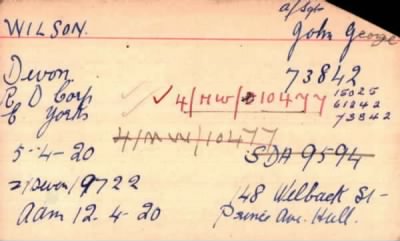 a/Sgt
WILSON. John George
Devon 73842
R D Corp ✓ 4/MW/010477 15025
E Yorks 61242
73842
4/MW/10477
5-4-20 SDH 9594
2/Devon/9722
aam 12.4-20 148 Welbeck St-
Princes Ave. Hull.